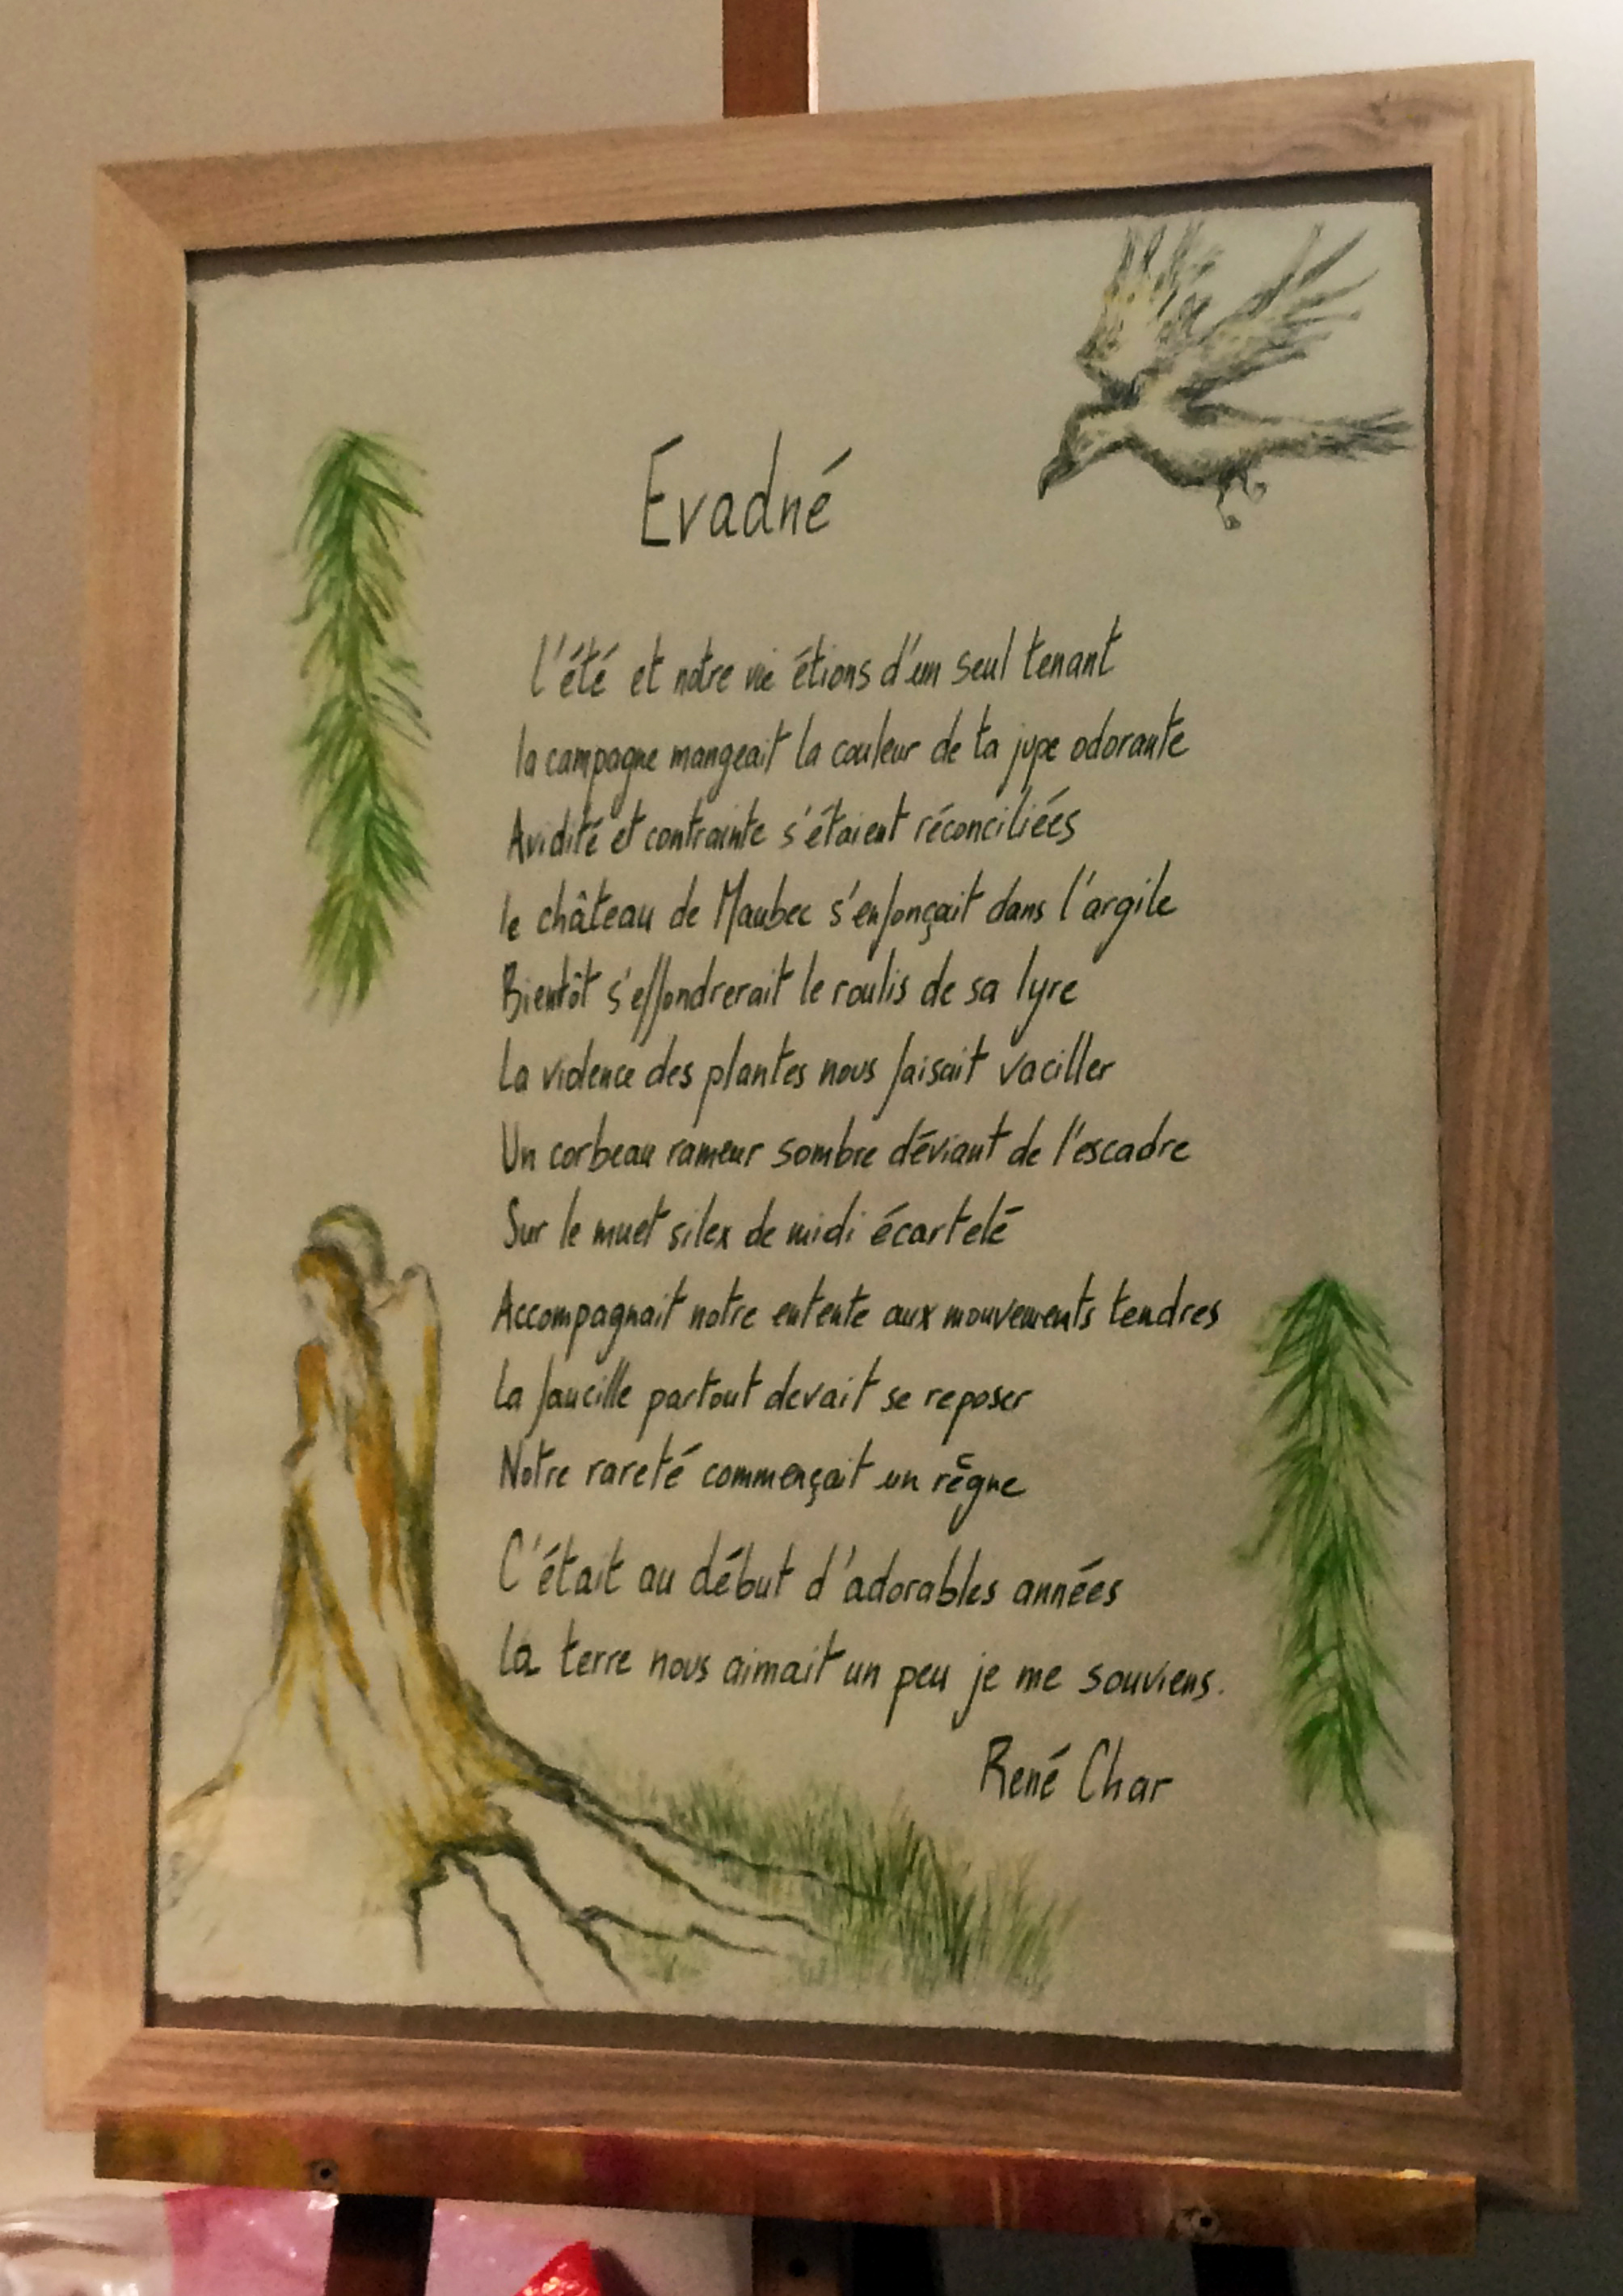 Évadné
l'été et notre vie étions d'un seul tenant
la campagne mangeait la couleur de ta jupe odorante
Avidité et contrainte s'étaient réconciliées
le château de Maubec s'enfonçait dans l'argile
Bientôt s'effondrerait le roulis de sa lyre
La violence des plantes nous faisait vaciller
Un corbeau rameur sombre déviant de l'escadre
Sur le muet silex de midi écartelé
Accompagnait notre entente aux mouvements tendres
La faucille partout devait se reposer
Notre rareté commençait un règne
C'était au début d'adorables années
la terre nous aimait un peu je me souviens.
René Char